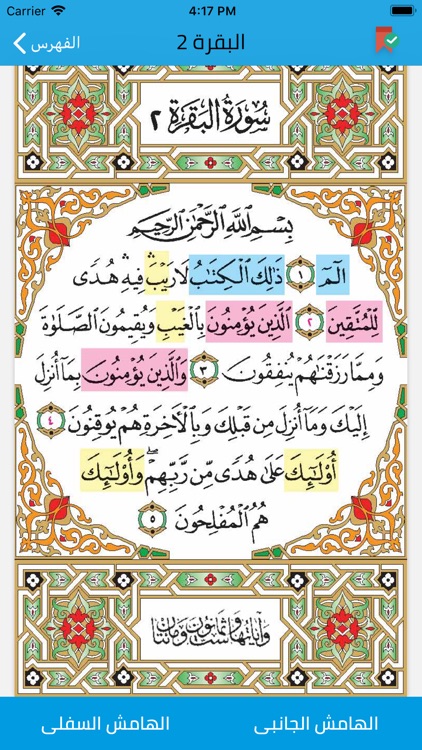 Carrier 4:17 PM
الفهرس البقرة 2
سُورَةُ الْبَقَرَةِ ٢
بِسْمِ اللَّهِ الرَّحْمَٰنِ الرَّحِيمِ
الٓمٓ ١ ذَٰلِكَ الْكِتَٰبُ لَا رَيْبَ ۛ فِيهِ ۛ هُدًى
لِّلْمُتَّقِينَ ٢ الَّذِينَ يُؤْمِنُونَ بِالْغَيْبِ وَيُقِيمُونَ الصَّلَوٰةَ
وَمِمَّا رَزَقْنَٰهُمْ يُنفِقُونَ ٣ وَالَّذِينَ يُؤْمِنُونَ بِمَآ أُنزِلَ
إِلَيْكَ وَمَآ أُنزِلَ مِن قَبْلِكَ وَبِالْأَخِرَةِ هُمْ يُوقِنُونَ ٤
أُوْلَٰٓئِكَ عَلَىٰ هُدًى مِّن رَّبِّهِمْ ۖ وَأُوْلَٰٓئِكَ
هُمُ الْمُفْلِحُونَ ٥
وآياتها ست وثمانون ومائتان
الهامش الجانبى الهامش السفلى